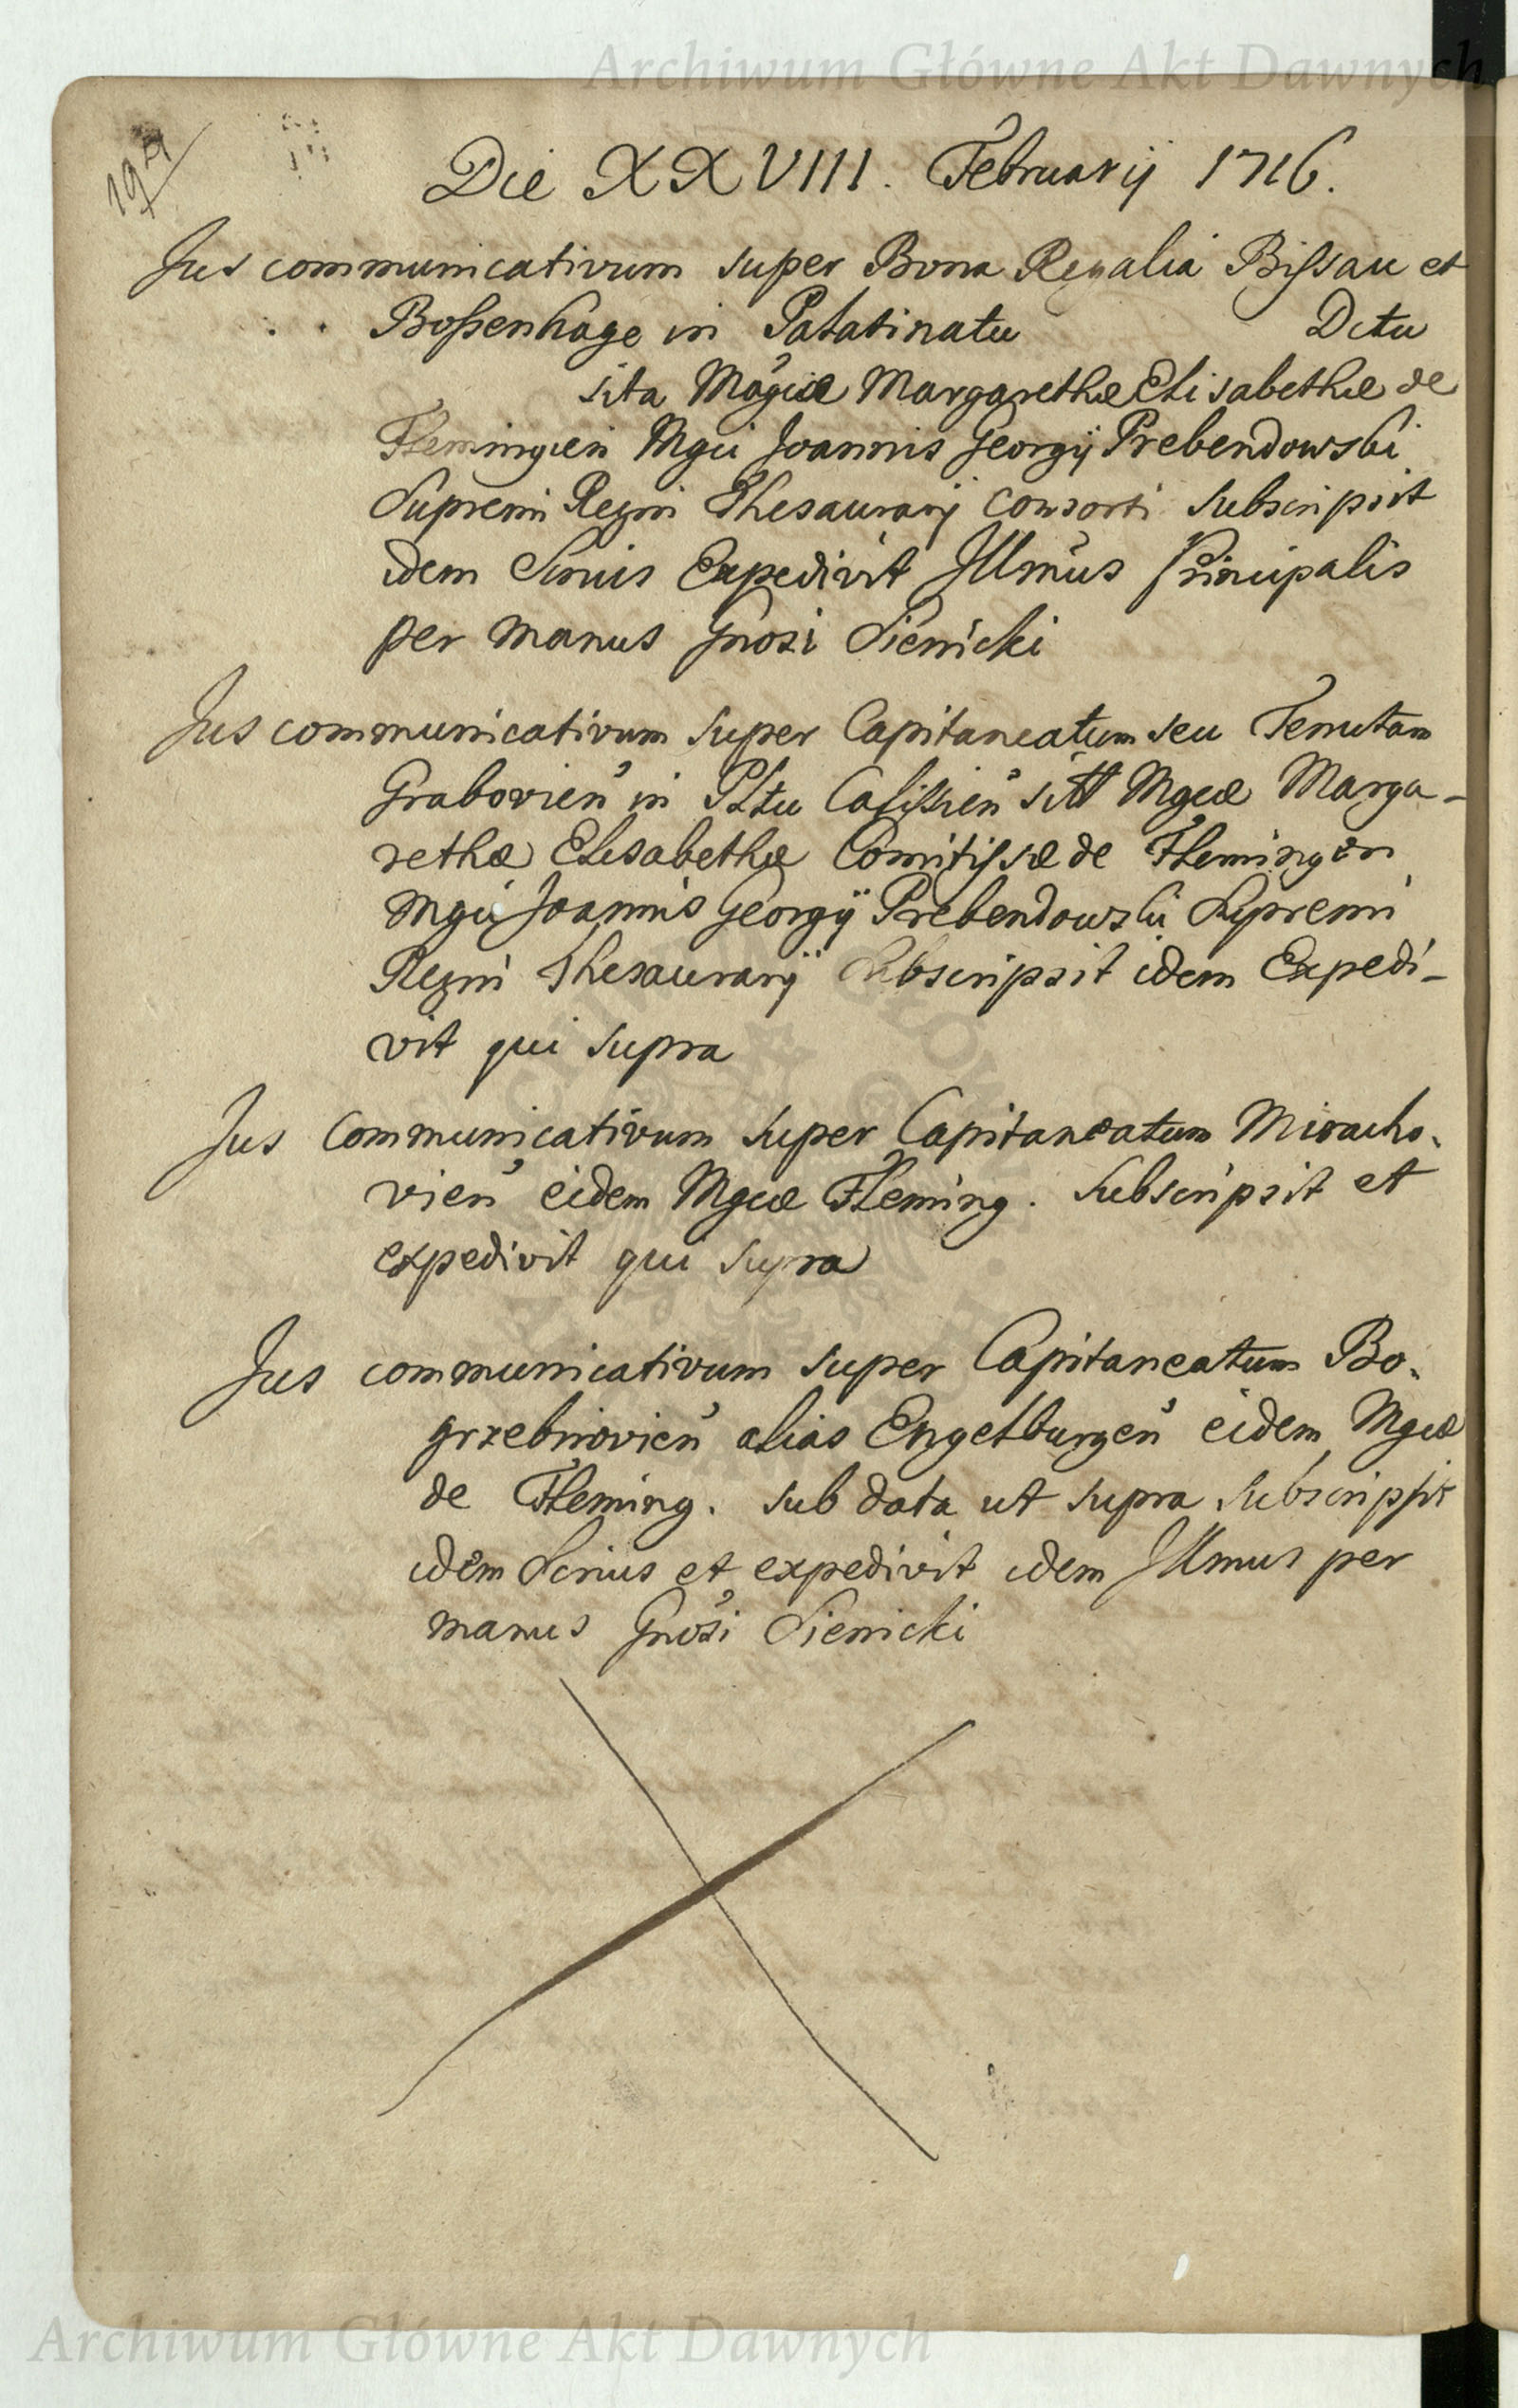 Archiwum Główne Akt Dawnych
Die XXVIII. Februarij 1716.
Jus communicativum super Bona Regalia Bissau et
Bossenhage in Palatinatu Dctu
sita Magcæ Margarethæ Elisabethæ de
Flemingien Mgci Joannis Georgij Prebendowski
Supremi Regni Thesaurarij consorti subscripsit
idem Srnus Expedivit Illmus Principalis
per manus Gnosi Sienicki
Jus communicativum super Capitaneatum seu Tenutam
Grabovien in Pltu Calissien Mgcæ Marga-
rethæ Elisabethæ Comitissæ de Flemingen
Mgci Joannis Georgij Prebendowski Supremi
Regni Thesaurarij Subscripsit idem Expedi-
vit qui supra
Jus communicativum super Capitaneatum Miracho-
vien eidem Mgcæ Fleming. Subscripsit et
expedivit qui supra
Jus communicativum super Capitaneatum Bo-
grzebnovien alias Engelburgen eidem Mgcæ
de Fleming. sub data ut supra subscripsit
idem Srnus et expedivit idem Illmus per
manus Gnosi Sienicki
Archiwum Główne Akt Dawnych